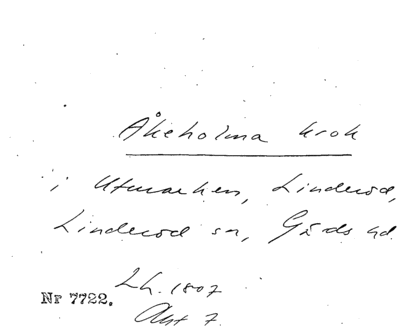 Åkeholma krok
i Utmarken, Linderöd,
Linderöd sn, Gärds hd.
Lh. 1807
Nr 7722.
Akt 7.